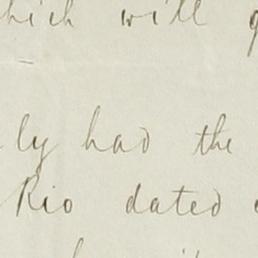 which will
ly had the
Rio dated